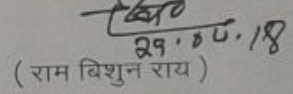 29.05.18
( राम बिशुन राय )